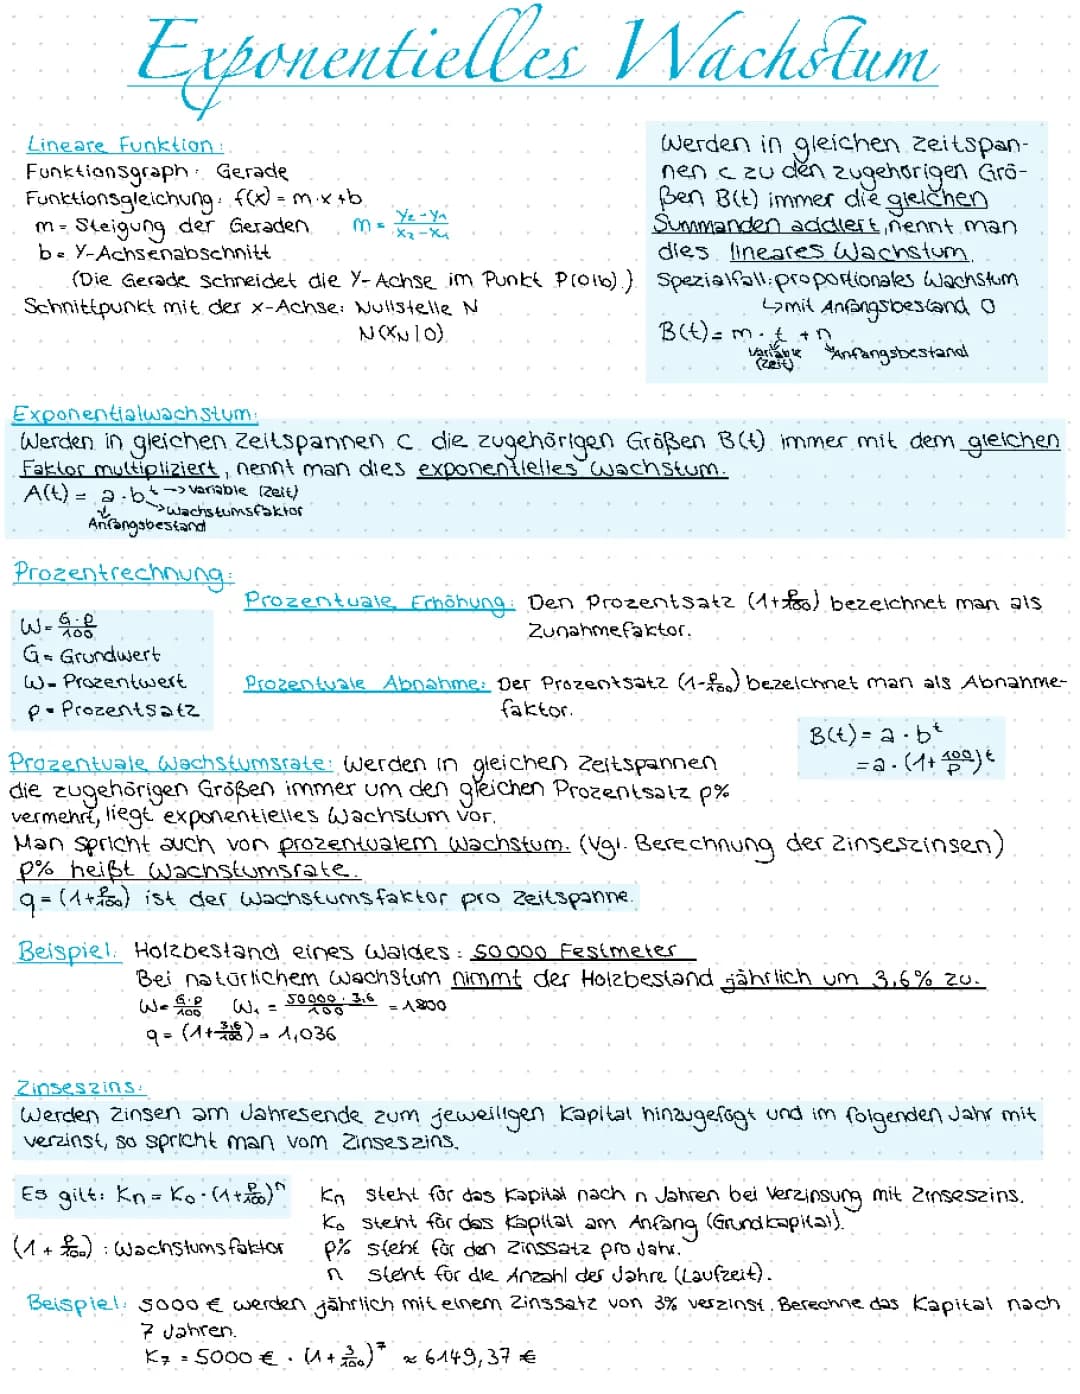 Exponentielles Wachstum
Lineare Funktion:
Funktionsgraph: Gerade
Funktionsgleichung: f(x) = m·x+b
m = Steigung der Geraden m = y₂-y₁/x₂-x₁
b = y-Achsenabschnitt
(Die Gerade schneidet die y-Achse im Punkt P(0|b).)
Schnittpunkt mit der x-Achse: Nullstelle N
N(xN|0)
Werden in gleichen Zeitspan-
nen c zu den zugehörigen Grö-
ßen B(t) immer die gleichen
Summanden addiert, nennt man
dies lineares Wachstum.
Spezialfall: proportionales Wachstum
↳mit Anfangsbestand 0
B(t) = m · t + n
Variable Anfangsbestand
(Zeit)
Exponentialwachstum:
Werden in gleichen Zeitspannen c die zugehörigen Größen B(t) immer mit dem gleichen
Faktor multipliziert, nennt man dies exponentielles Wachstum.
A(t) = a·bᵗ → Variable (Zeit)
→Wachstumsfaktor
Anfangsbestand
Prozentrechnung:
W = G·p/100
G = Grundwert
W = Prozentwert
p = Prozentsatz
Prozentuale Erhöhung: Den Prozentsatz (1+p/100) bezeichnet man als
Zunahmefaktor.
Prozentuale Abnahme: Der Prozentsatz (1-p/100) bezeichnet man als Abnahme-
faktor.
B(t) = a · bᵗ
= a · (1+100/p)ᵗ
Prozentuale Wachstumsrate: Werden in gleichen Zeitspannen
die zugehörigen Größen immer um den gleichen Prozentsatz p%
vermehrt, liegt exponentielles Wachstum vor.
Man spricht auch von prozentualem Wachstum. (Vgl. Berechnung der Zinseszinsen)
p% heißt Wachstumsrate.
q = (1+p/100) ist der Wachstumsfaktor pro Zeitspanne.
Beispiel: Holzbestand eines Waldes: 50 000 Festmeter
Bei natürlichem Wachstum nimmt der Holzbestand jährlich um 3,6% zu.
W = G·p/100 W₁ = 50000 · 3,6/100 = 1800
q = (1+3,6/100) = 1,036
Zinseszins:
Werden Zinsen am Jahresende zum jeweiligen Kapital hinzugefügt und im folgenden Jahr mit
verzinst, so spricht man vom Zinseszins.
Es gilt: Kn = K₀ · (1+p/100)ⁿ
(1 + p/100) : Wachstumsfaktor
Kn steht für das Kapital nach n Jahren bei Verzinsung mit Zinseszins.
K₀ steht für das Kapital am Anfang (Grundkapital).
p% steht für den Zinssatz pro Jahr.
n steht für die Anzahl der Jahre (Laufzeit).
Beispiel: 5000 € werden jährlich mit einem Zinssatz von 3% verzinst. Berechne das Kapital nach
7 Jahren.
K₇ = 5000 € · (1+3/100)⁷ ≈ 6149,37 €